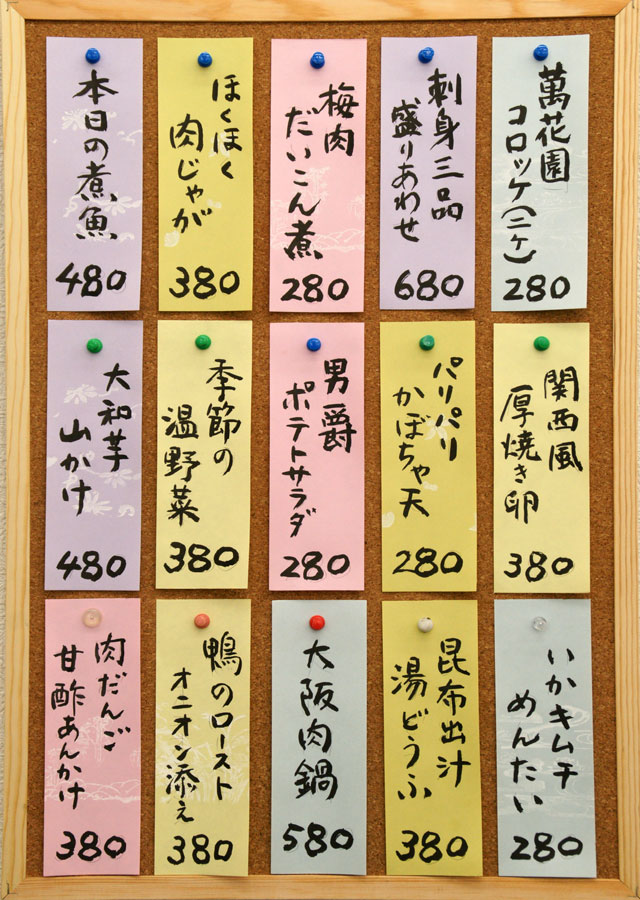 萬花園
コロッケ(二ケ)
280
刺身三品
盛りあわせ
680
梅肉
だいこん煮
280
ほくほく
肉じゃが
380
本日の煮魚
480
関西風
厚焼き卵
380
パリパリ
かぼちゃ天
280
男爵
ポテトサラダ
280
季節の
温野菜
380
大和芋
山かけ
480
いかキムチ
めんたい
280
昆布出汁
湯どうふ
380
大阪肉鍋
580
鴨のロースト
オニオン添え
380
肉だんご
甘酢あんかけ
380